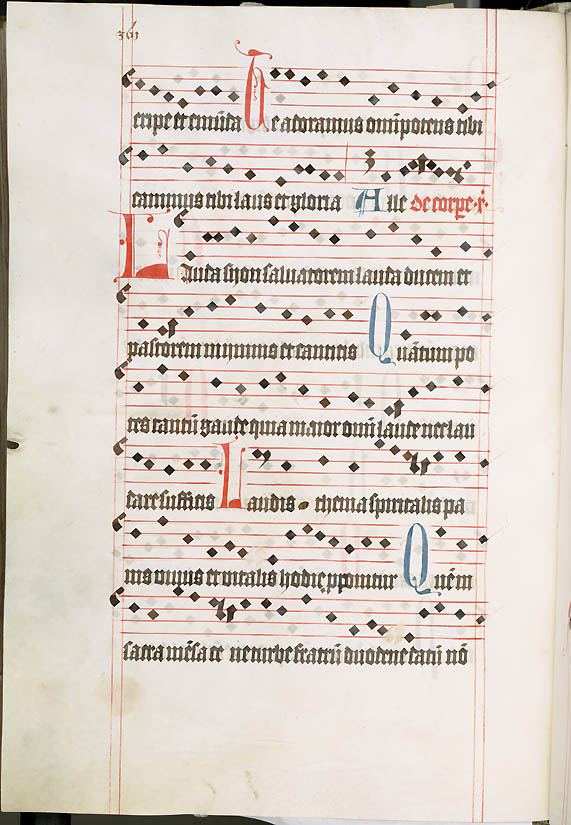 361
eripe et emūda Te adoramus omīpotens tibi
canimus tibi laus et gloria Aue de corpe xͥ
Lauda syon saluatorem lauda ducem et
pastorem in ymnis et canticis Quātum po
tes tantū gaude quia maior omī laude nec lau
dare sufficis Laudis thema spiritalis pa
nis viuus et vitalis hodie pponitur Quē in
sacra mēsa ce ne turbe fratrū duodene datū nō